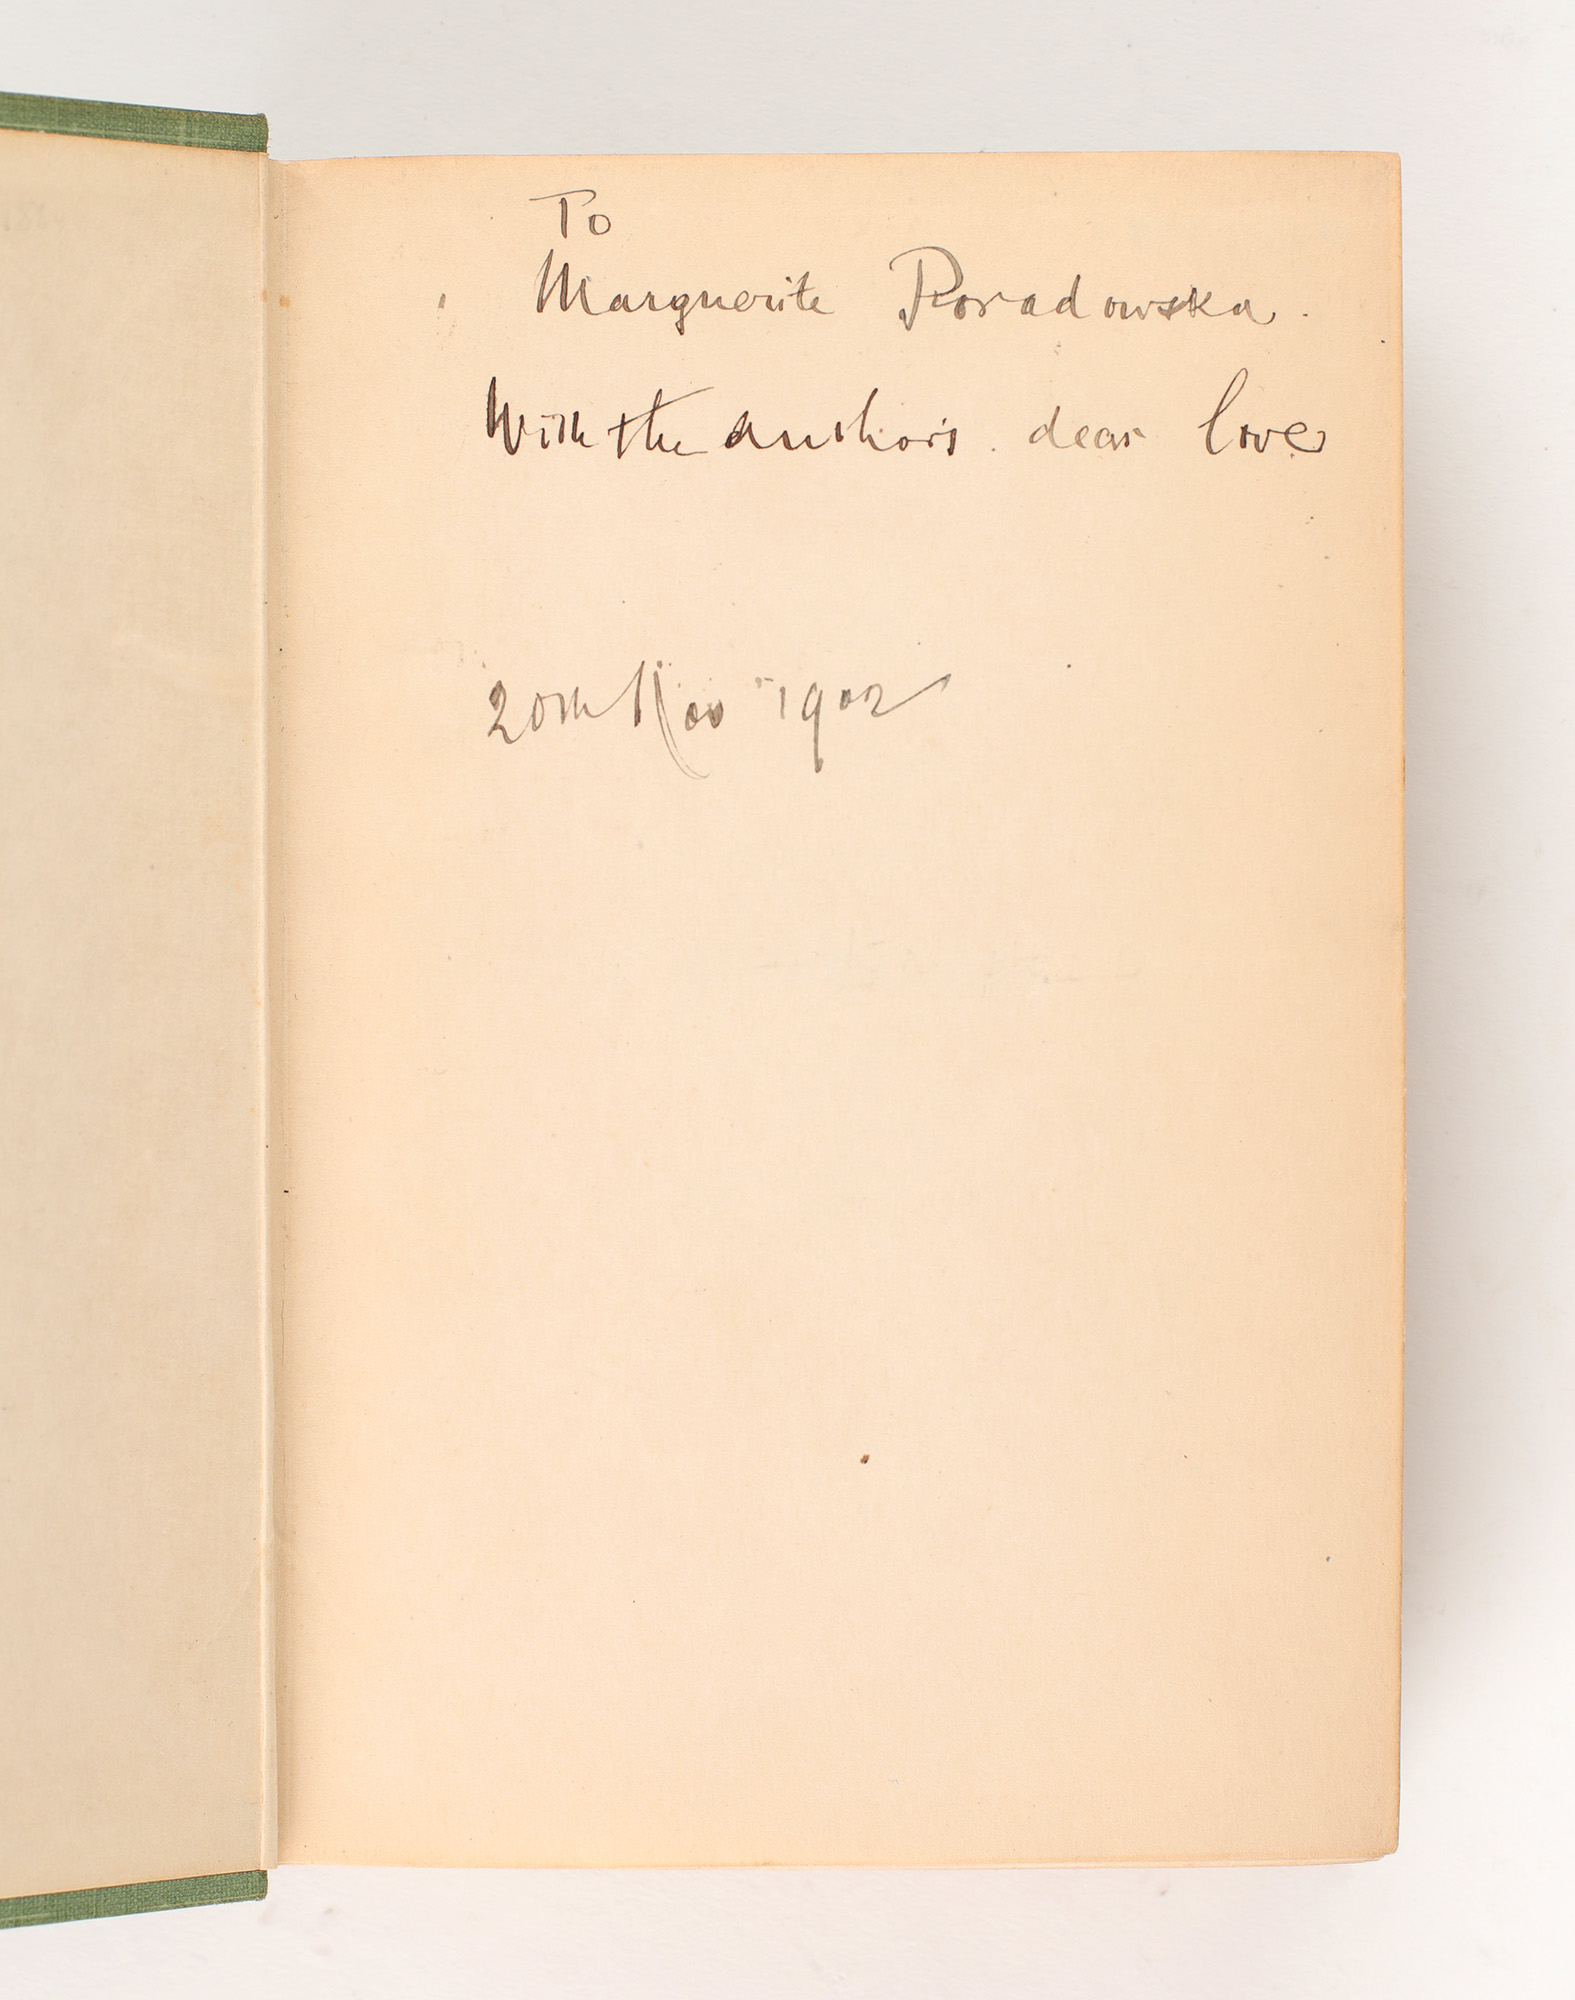 To
Marguerite Poradowska.
With the author's dear love
20th Nov 1902